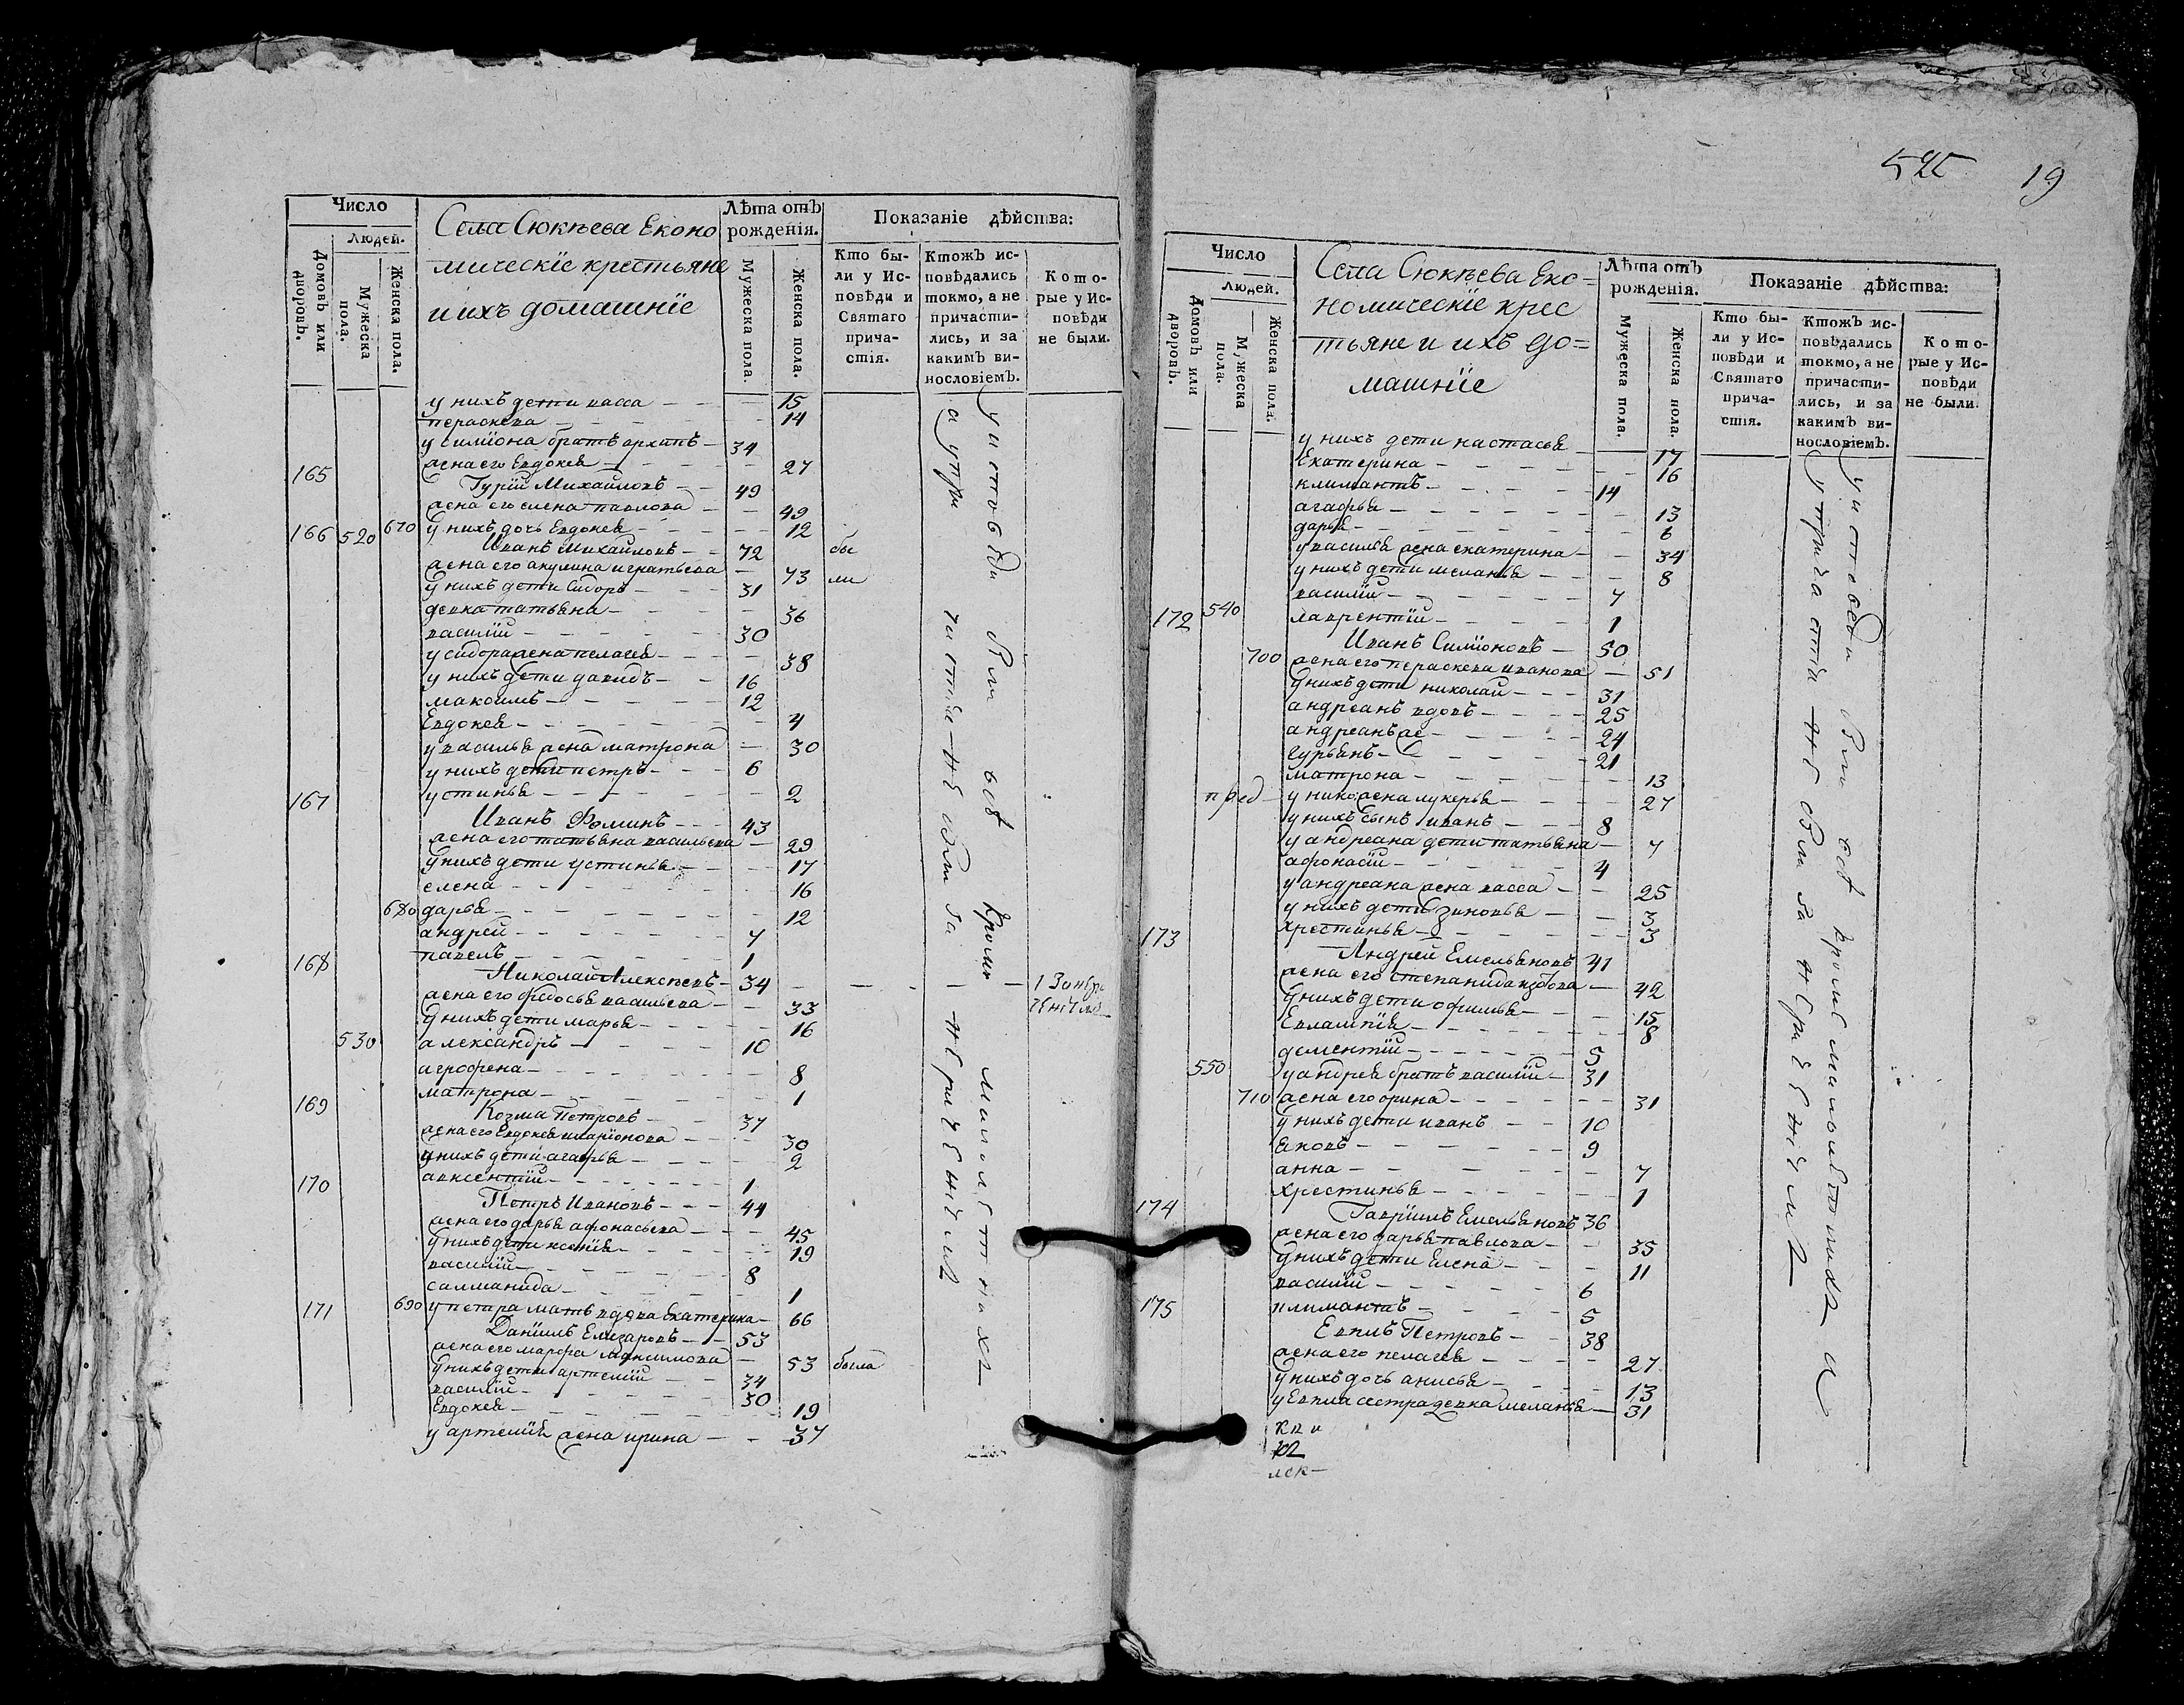 Число
Людей.
Домовъ или дворовъ.
Мужеска пола.
Женска пола.
Села Сюкѣева Еконо
мическіе крестьяне
и ихъ домашніе
Лѣта отъ рожденія.
Мужеска пола.
Женска пола.
Показаніе дѣйства:
Кто бы-
ли у Ис-
повѣди и
Святаго
прича-
стія.
Ктожъ ис-
повѣдались
токмо, а не
причасти-
лись, и за
какимъ ви-
нословіемъ.
Кото-
рые у Ис-
повѣди
не были.
у нихъ дети васса — 15
пераскева — 14
у симіона братъ архипъ — 34
жена его Евдокея — 27
165 Гурій Михайловъ — 49
жена его елена павлова — 49
670 у нихъ дочь Евдокея — 12
166 520 Иванъ Михайловъ — 72 бы
жена его акулина игнатьева — 73 ли
у нихъ дети Сидоръ — 31
девка татьяна — 36
василій — 30
у сидора жена пелагея — 38
у нихъ дети давидъ — 16
максимъ — 12
Евдокея — 4
у василья жена матрона — 30
у нихъ дети петръ — 6
устинья — 2
167 Иванъ Фоминъ — 43
жена его татьяна васильева — 29
у нихъ дети устинья — 17
елена — 16
680 дарья — 12
андрей — 7
павелъ — 1
168 Николай Алексеевъ — 34
жена его федосья васильева — 33
у нихъ дети марья — 16
530 александръ — 10
агрофена — 8
матрона — 1
169 Козма Петровъ — 37
жена его Евдокея иларіонова — 30
у нихъ дети агафья — 2
авксентій — 1
170 Петръ Ивановъ — 44
жена его дарья афонасьева — 45
у нихъ дети ксенія — 19
василій — 8
салманида — 1
690 у петра мать вдова Екатерина — 66
171 Даніилъ Елизаровъ — 53
жена его марфа Максимова — 53 была
у нихъ дети артемій — 34
василій — 30
Евдокея — 19
у артемія жена ирина — 37
19
Число
Людей.
Домовъ или дворовъ.
Мужеска пола.
Женска пола.
Села Сюкѣева Еко=
номическіе крес
тьяне и ихъ до=
машніе
Лѣта отъ рожденія.
Мужеска пола.
Женска пола.
Показаніе дѣйства:
Кто бы-
ли у Ис-
повѣди и
Святаго
прича-
стія.
Ктожъ ис-
повѣдались
токмо, а не
причасти-
лись, и за
какимъ ви-
нословіемъ.
Кото-
рые у Ис-
повѣди
не были.
у нихъ дети настасья — 17
Екатерина — 16
климантъ — 14
агафья — 13
дарья — 6
у василья жена екатерина — 34
у нихъ дети меланья — 8
василій — 7
540 лаврентій — 1
172 Иванъ Симіоновъ — 50
700 жена его пераскева иванова — 51
у нихъ дети николай — 31
андреанъ вдовъ — 25
андреанъ же — 24
гурьянъ — 21
матрона — 13
у нико жена лукерья — 27
у нихъ сынъ иванъ — 8
у андреана дети татьяна — 7
афонасій — 4
у андреана жена васса — 25
у нихъ дети зиновья — 3
хрестинья — 3
173 Андрей Емельяновъ 41
жена его степанида — 42
у нихъ дети офимья — 15
Евлампія — 8
дементій — 5
550 у андрея братъ василій — 31
710 жена его орина — 31
у нихъ дети иванъ — 10
яковъ — 9
анна — 7
хрестинья — 1
174 Гавріилъ Емельяновъ 36
жена его дарья павлова — 35
у нихъ дети Елена — 11
василій — 6
климантъ — 5
175 Евплъ Петровъ — 38
жена его пелагея — 27
у нихъ дочь анисья — 13
у Евпла сестра девка меланья — 31